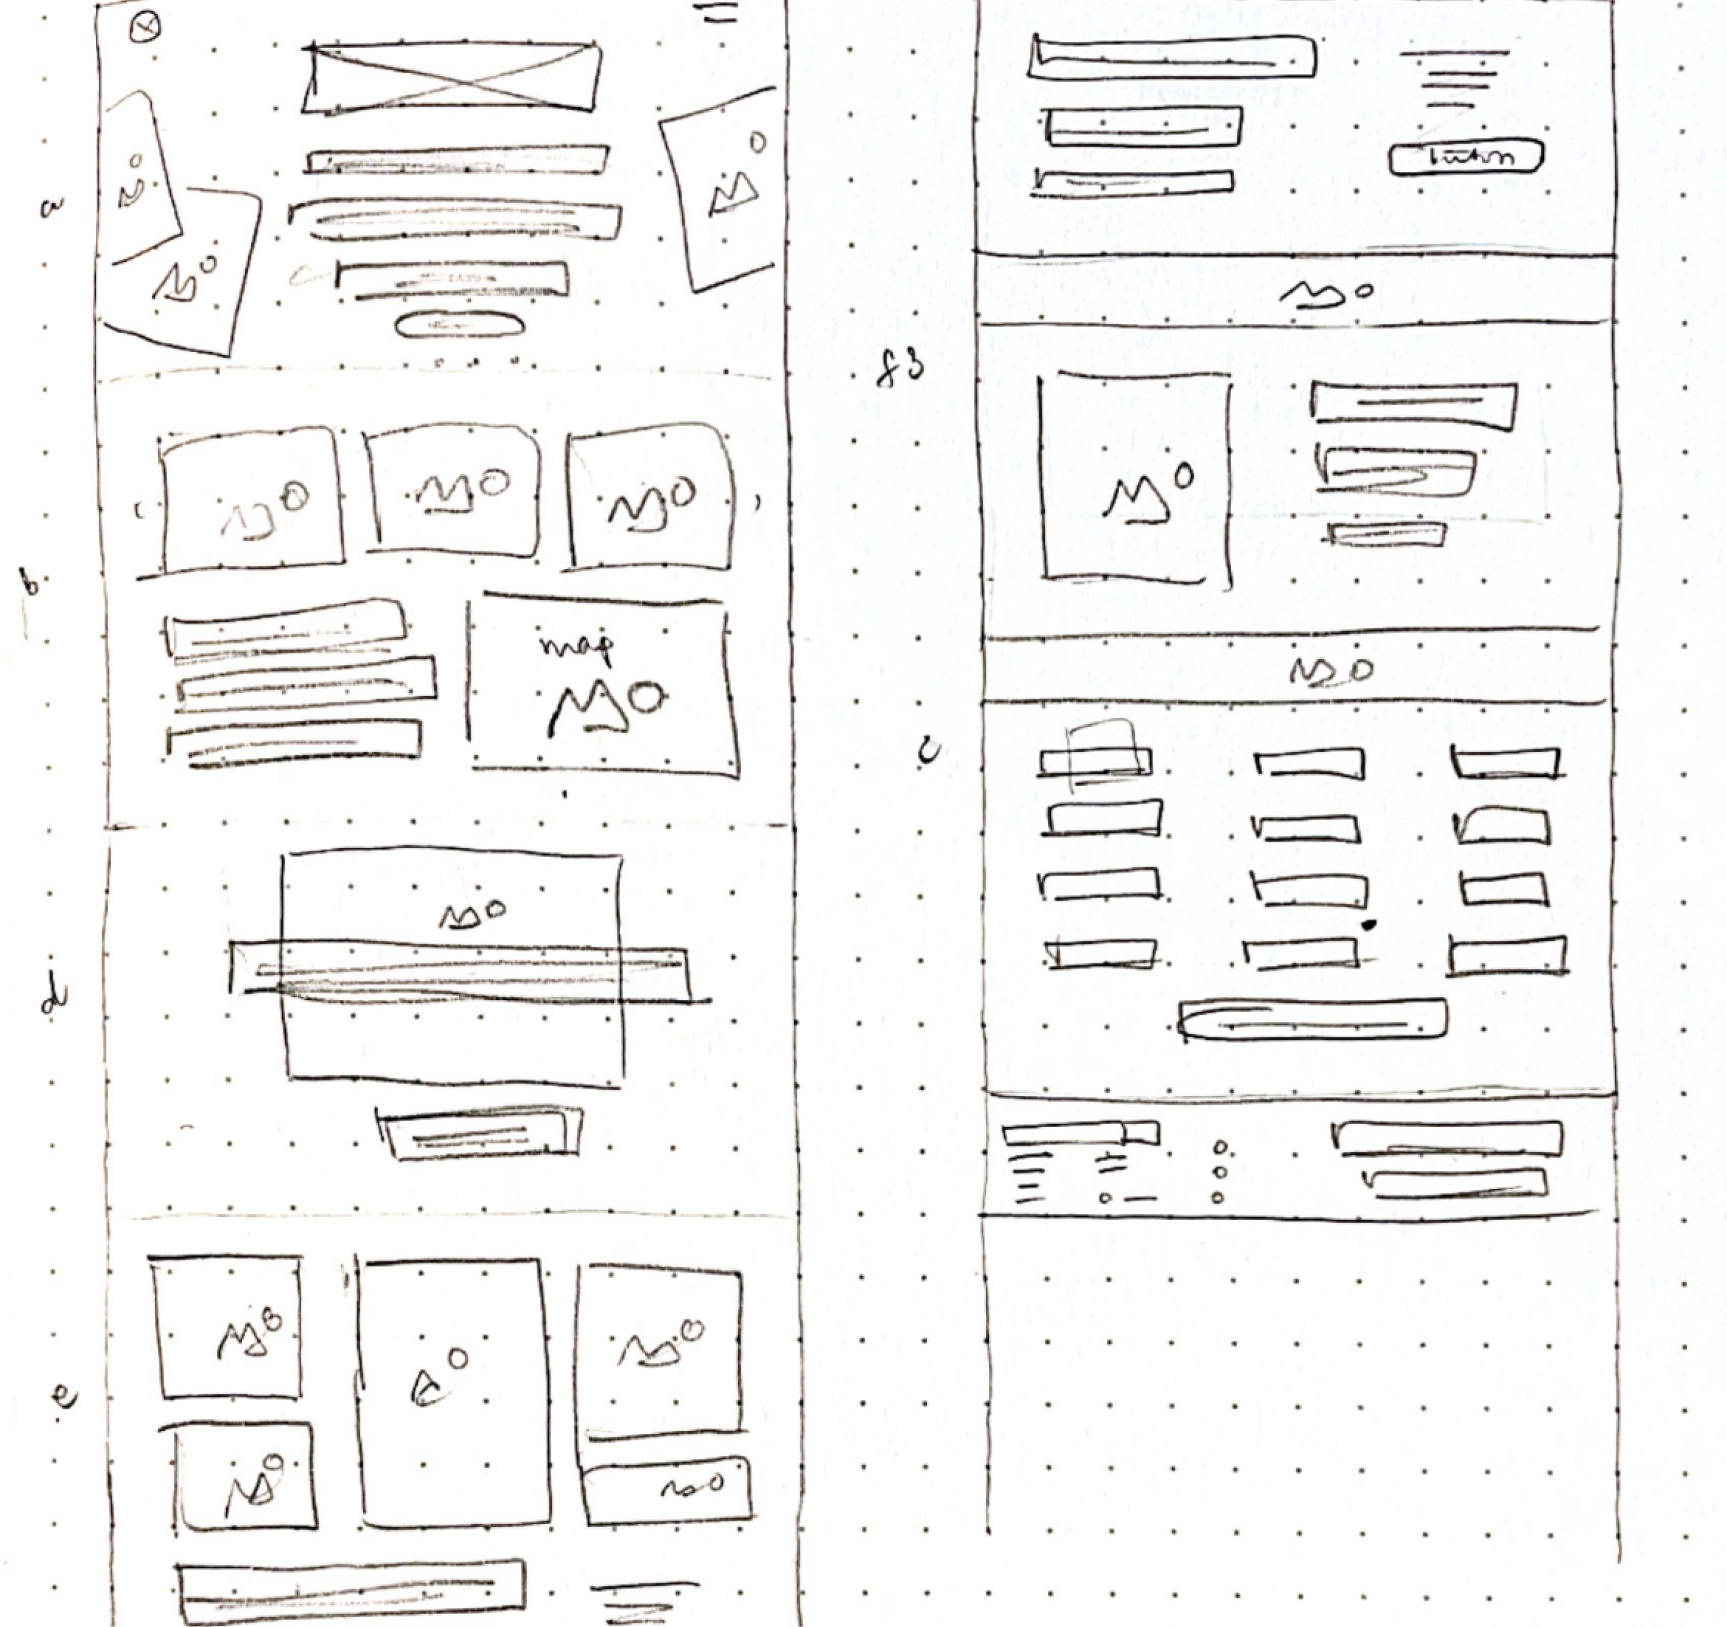 a
b
map
d
e
button
c